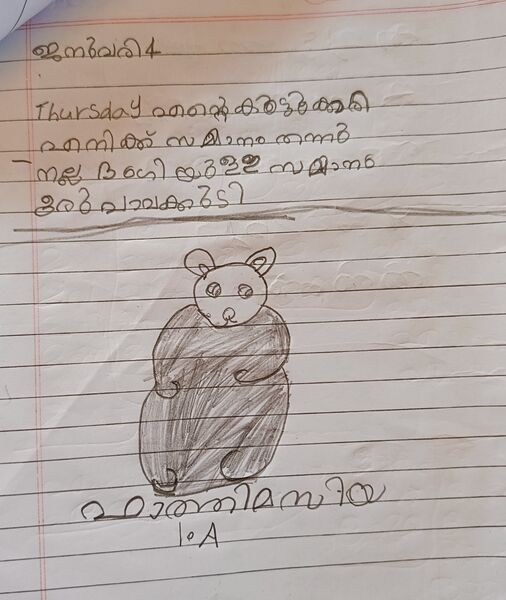 ജനുവരി 4
Thursday എന്റെ കൂട്ടുക്കാരി
എനിക്ക് സമ്മാനം തന്നു
നല്ല ഭംഗിയുള്ള സമ്മാനം
ഒരു പാവക്കുട്ടി
ഫാത്തിമ സിയ
1.A